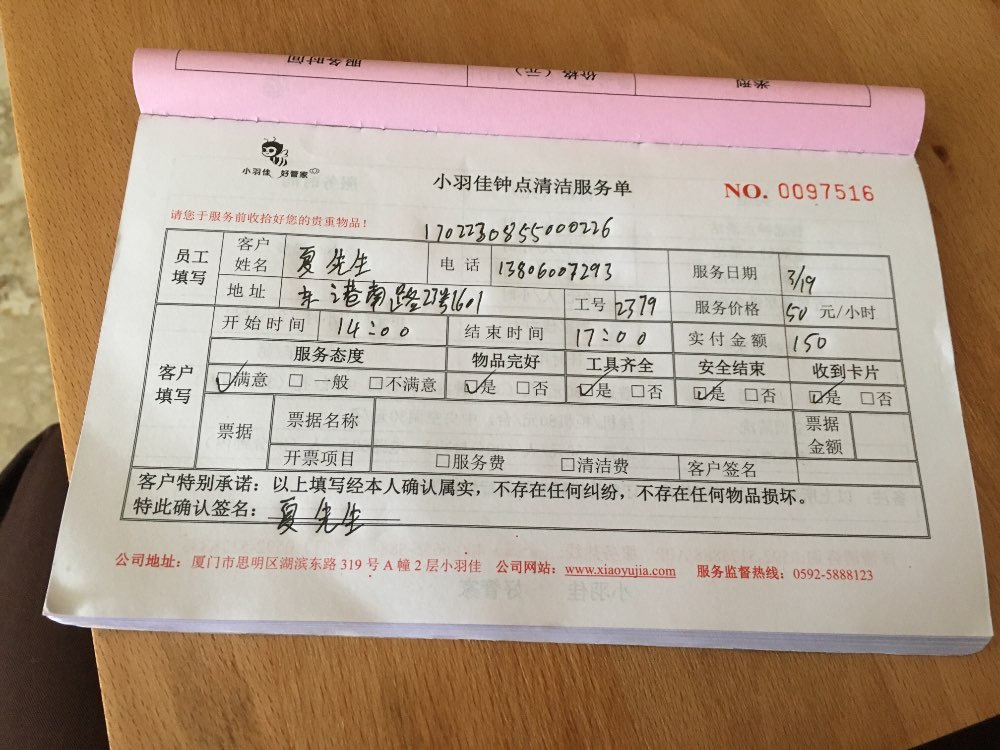 服务时间 价格（元） 类型
小羽佳 好管家
小羽佳钟点清洁服务单
NO. 0097516
请您于服务前收拾好您的贵重物品！
1702230855000226
员工填写 客户姓名 夏先生 电话 13806007293 服务日期 3/19
地址 东港南路27号1601 工号 2379 服务价格 50 元/小时
客户填写 开始时间 14:00 结束时间 17:00 实付金额 150
服务态度 物品完好 工具齐全 安全结束 收到卡片
☑满意 □一般 □不满意 ☑是 □否 ☑是 □否 ☑是 □否 ☑是 □否
票据 票据名称 票据金额
开票项目 □服务费 □清洁费 客户签名
客户特别承诺：以上填写经本人确认属实，不存在任何纠纷，不存在任何物品损坏。
特此确认签名：夏先生
公司地址：厦门市思明区湖滨东路 319 号 A 幢 2 层小羽佳 公司网站：www.xiaoyujia.com 服务监督热线：0592-5888123